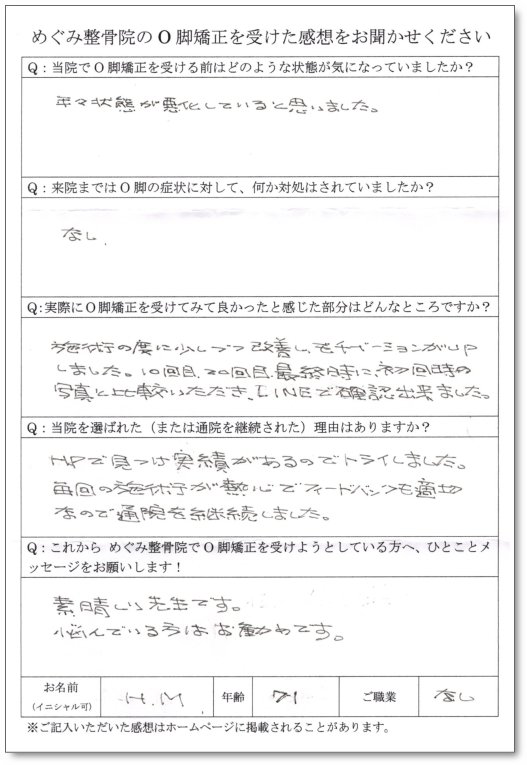 めぐみ整骨院のO脚矯正を受けた感想をお聞かせください
Q：当院でO脚矯正を受ける前はどのような状態が気になっていましたか？
年々状態が悪化していると思いました。
Q：来院まではO脚の症状に対して、何か対処はされていましたか？
なし.
Q：実際にO脚矯正を受けてみて良かったと感じた部分はどんなところですか？
施術の度に少しづつ改善し、モチベーションがUP
しました。10回目、20回目、最終時に、初回時の
写真と比較いただき、LINEで確認出来ました。
Q：当院を選ばれた（または通院を継続された）理由はありますか？
HPで見つけ実績があるのでトライしました。
毎回の施術が熱心でフィードバックも適切
なので通院を継続しました。
Q：これから めぐみ整骨院でO脚矯正を受けようとしている方へ、ひとことメ
ッセージをお願いします！
素晴しい先生です。
悩んでいる方はお勧めです。
お名前 H.M. 年齢 71 ご職業 なし
（イニシャル可）
※ご記入いただいた感想はホームページに掲載されることがあります。